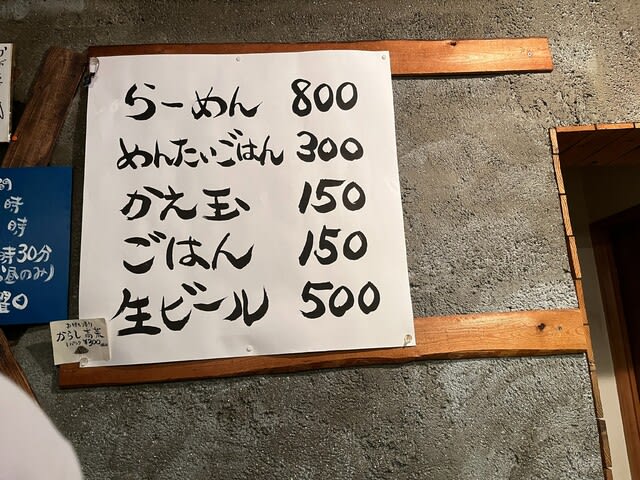 らーめん 800
めんたいごはん 300
かえ玉 150
ごはん 150
生ビール 500
お持ち帰り
からし高菜
¥300
時
時
時30分
昼のみ)
曜日